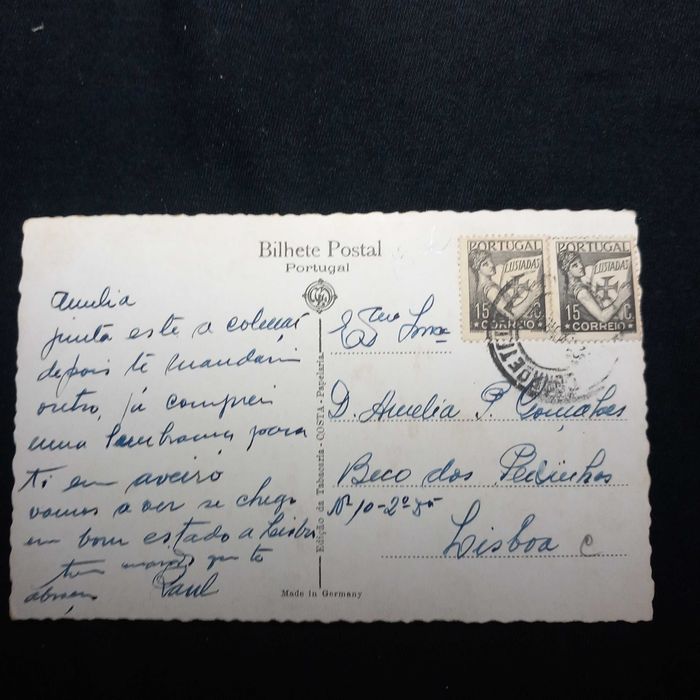 Bilhete Postal
Portugal
Amelia
junta este a coleção
depois te mandarei
outro, já comprei
uma lembrança para
ti em aveiro
vamos a ver se chega
em bom estado a Lisboa
teu marido que te
abraça
Raul
Edição da Tabacaria-COSTA-Papelaria
Made in Germany
PORTUGAL
LUSIADAS
15 C.
CORREIO
PORTUGAL
LUSIADAS
15 C.
CORREIO
Exma Snra
D. Amelia P. Gonçalves
Beco dos
Nº 10-2º
Lisboa